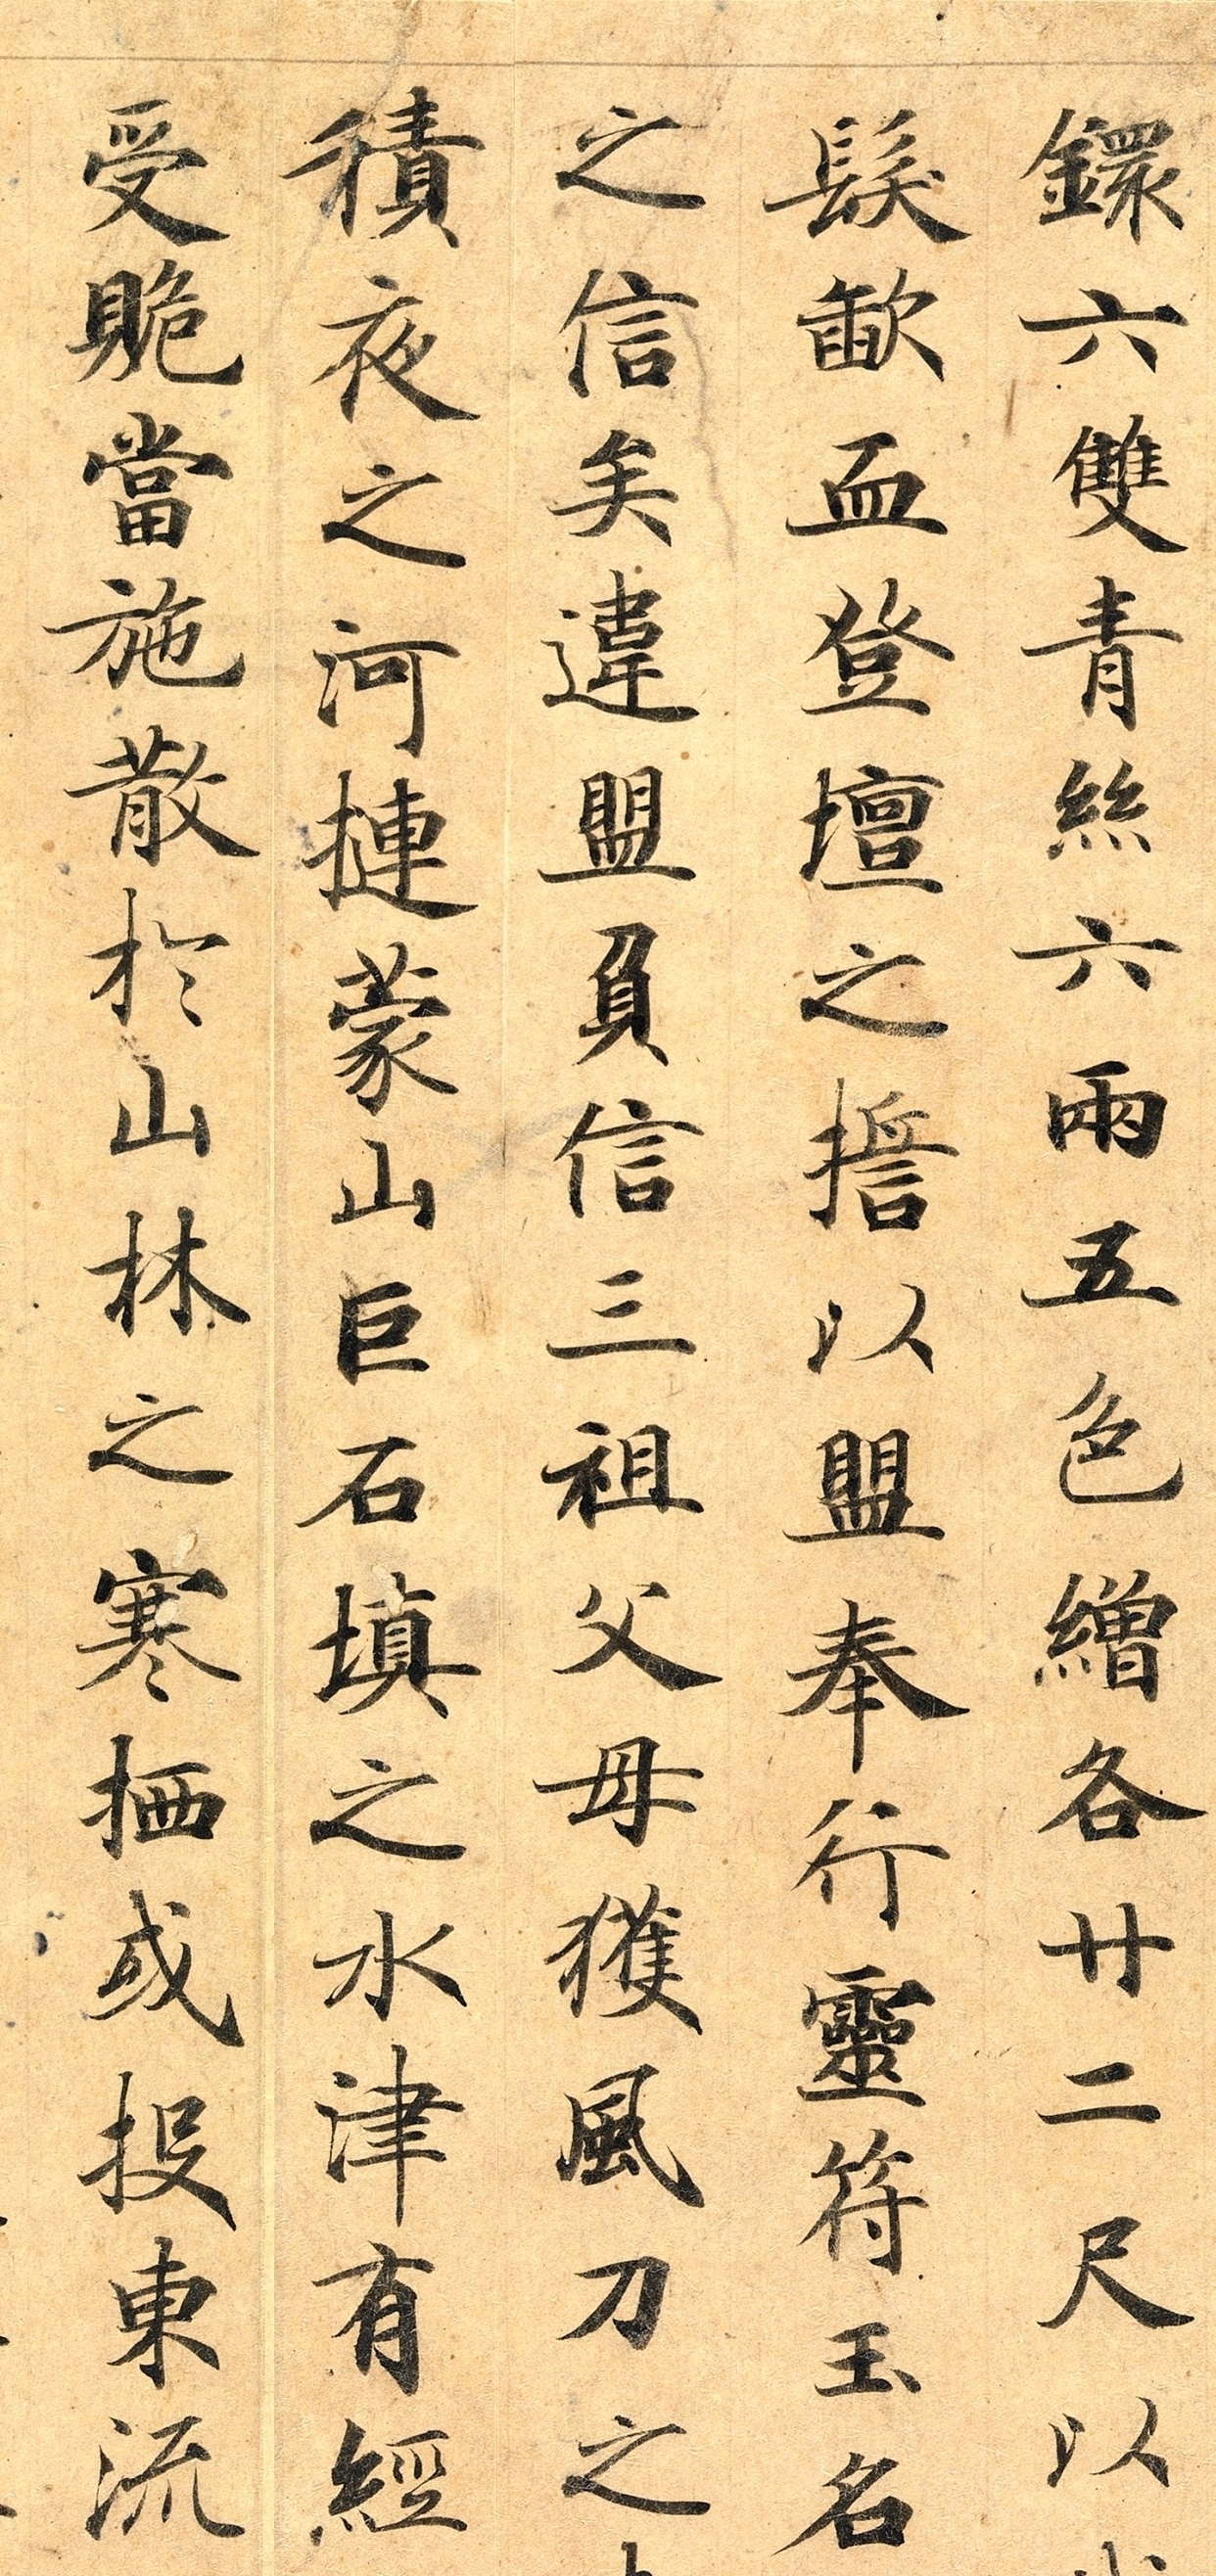 鐶六雙青絲六兩五色繒各廿二尺以
髮歃血登壇之誓以盟奉行靈符玉名
之信矣違盟負信三祖父母獲風刀之
積夜之河摙蒙山巨石填之水津有經
受賄當施散於山林之寒栖或投東流